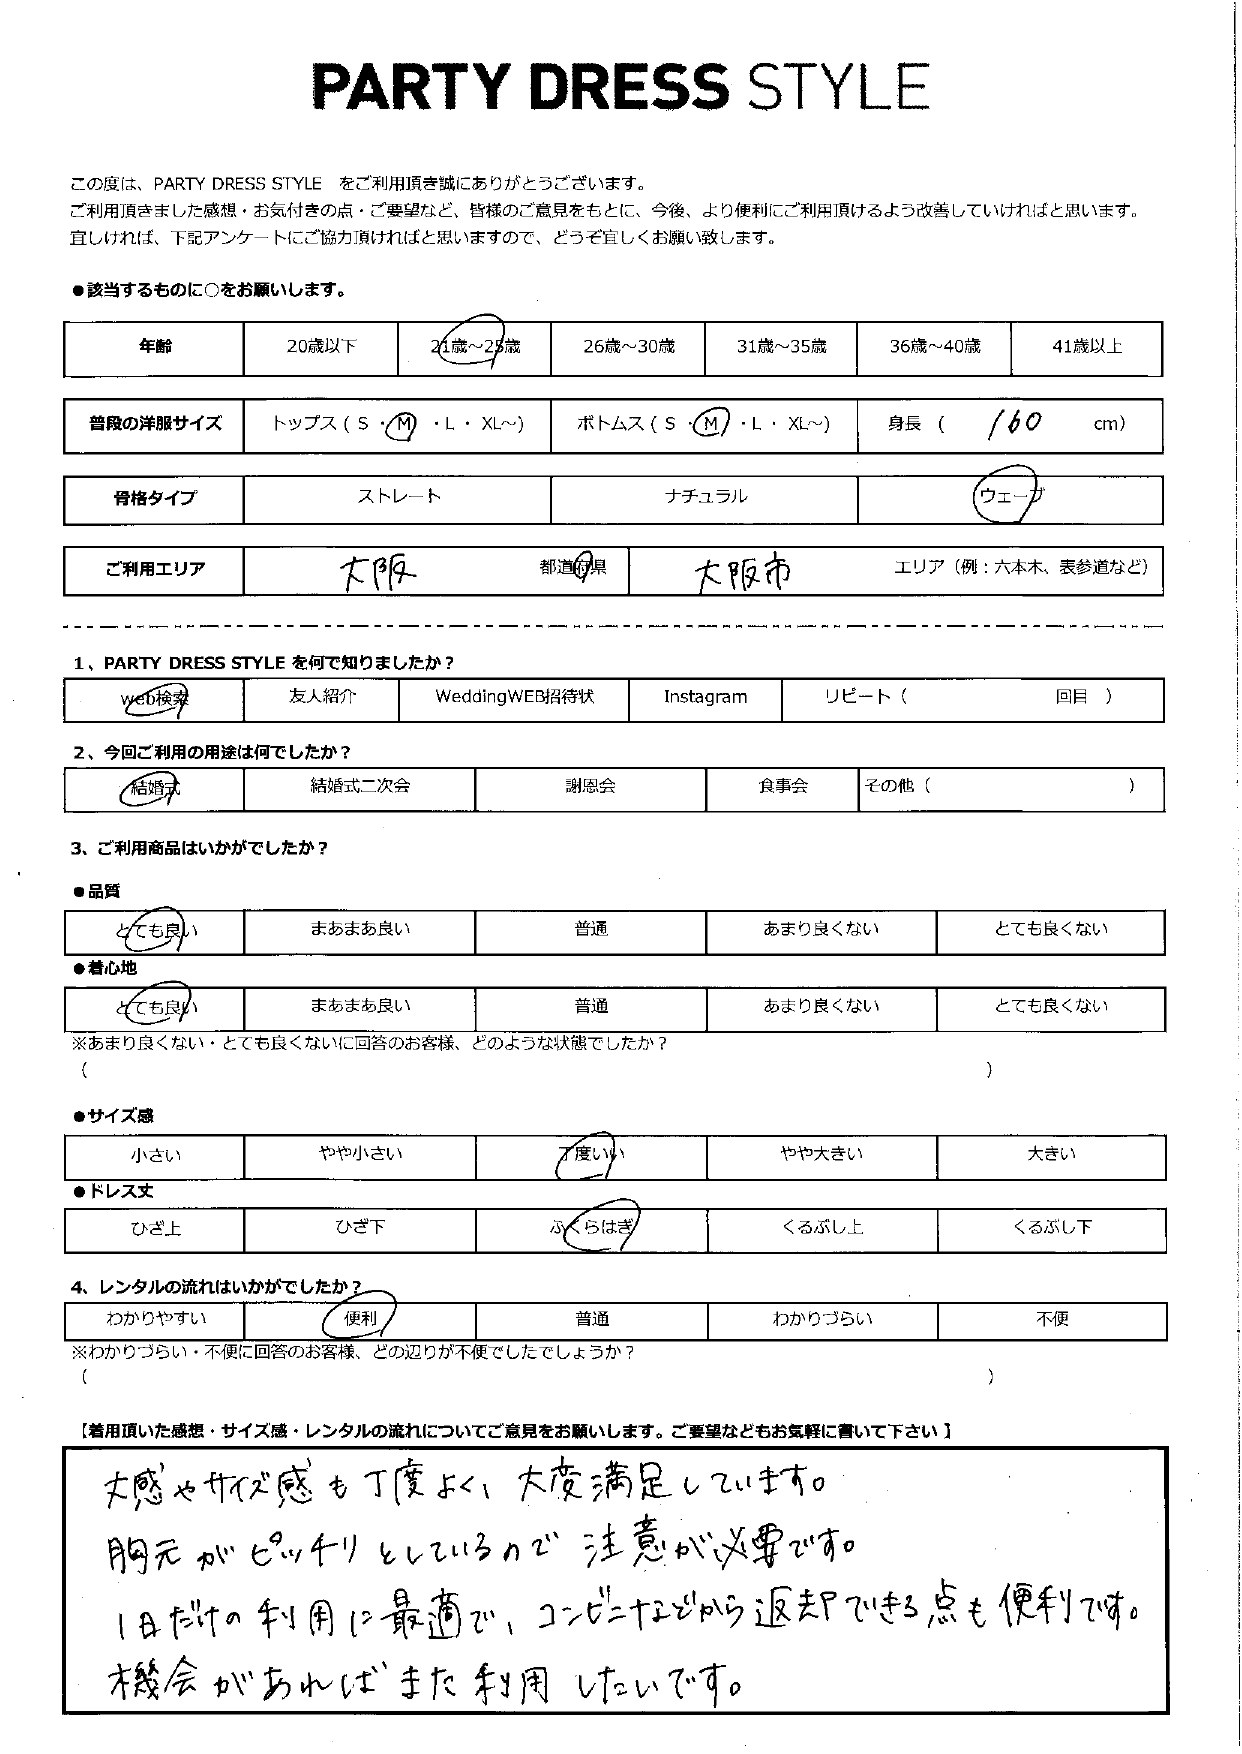 PARTY DRESS STYLE
この度は、PARTY DRESS STYLE をご利用頂き誠にありがとうございます。
ご利用頂きました感想・お気付きの点・ご要望など、皆様のご意見をもとに、今後、より便利にご利用頂けるよう改善していければと思います。
宜しければ、下記アンケートにご協力頂ければと思いますので、どうぞ宜しくお願い致します。
●該当するものに○をお願いします。
年齢 20歳以下 21歳～25歳 26歳～30歳 31歳～35歳 36歳～40歳 41歳以上
普段の洋服サイズ トップス ( S ・ M ・ L ・ XL～) ボトムス ( S ・ M ・ L ・ XL～) 身長 ( 160 cm)
骨格タイプ ストレート ナチュラル ウェーブ
ご利用エリア 大阪 都道府県 大阪市 エリア（例：六本木、表参道など）
1、PARTY DRESS STYLE を何で知りましたか？
web検索 友人紹介 WeddingWEB招待状 Instagram リピート（ 回目 ）
2、今回ご利用の用途は何でしたか？
結婚式 結婚式二次会 謝恩会 食事会 その他（ ）
3、ご利用商品はいかがでしたか？
●品質
とても良い まあまあ良い 普通 あまり良くない とても良くない
●着心地
とても良い まあまあ良い 普通 あまり良くない とても良くない
※あまり良くない・とても良くないに回答のお客様、どのような状態でしたか？
（ ）
●サイズ感
小さい やや小さい 丁度いい やや大きい 大きい
●ドレス丈
ひざ上 ひざ下 ふくらはぎ くるぶし上 くるぶし下
4、レンタルの流れはいかがでしたか？
わかりやすい 便利 普通 わかりづらい 不便
※わかりづらい・不便に回答のお客様、どの辺りが不便でしたでしょうか？
（ ）
【着用頂いた感想・サイズ感・レンタルの流れについてご意見をお願いします。ご要望などもお気軽に書いて下さい】
丈感やサイズ感も丁度よく、大変満足しています。
胸元がピッチリとしているので注意が必要です。
1日だけの利用に最適で、コンビニなどから返却できる点も便利です。
機会があればまた利用したいです。